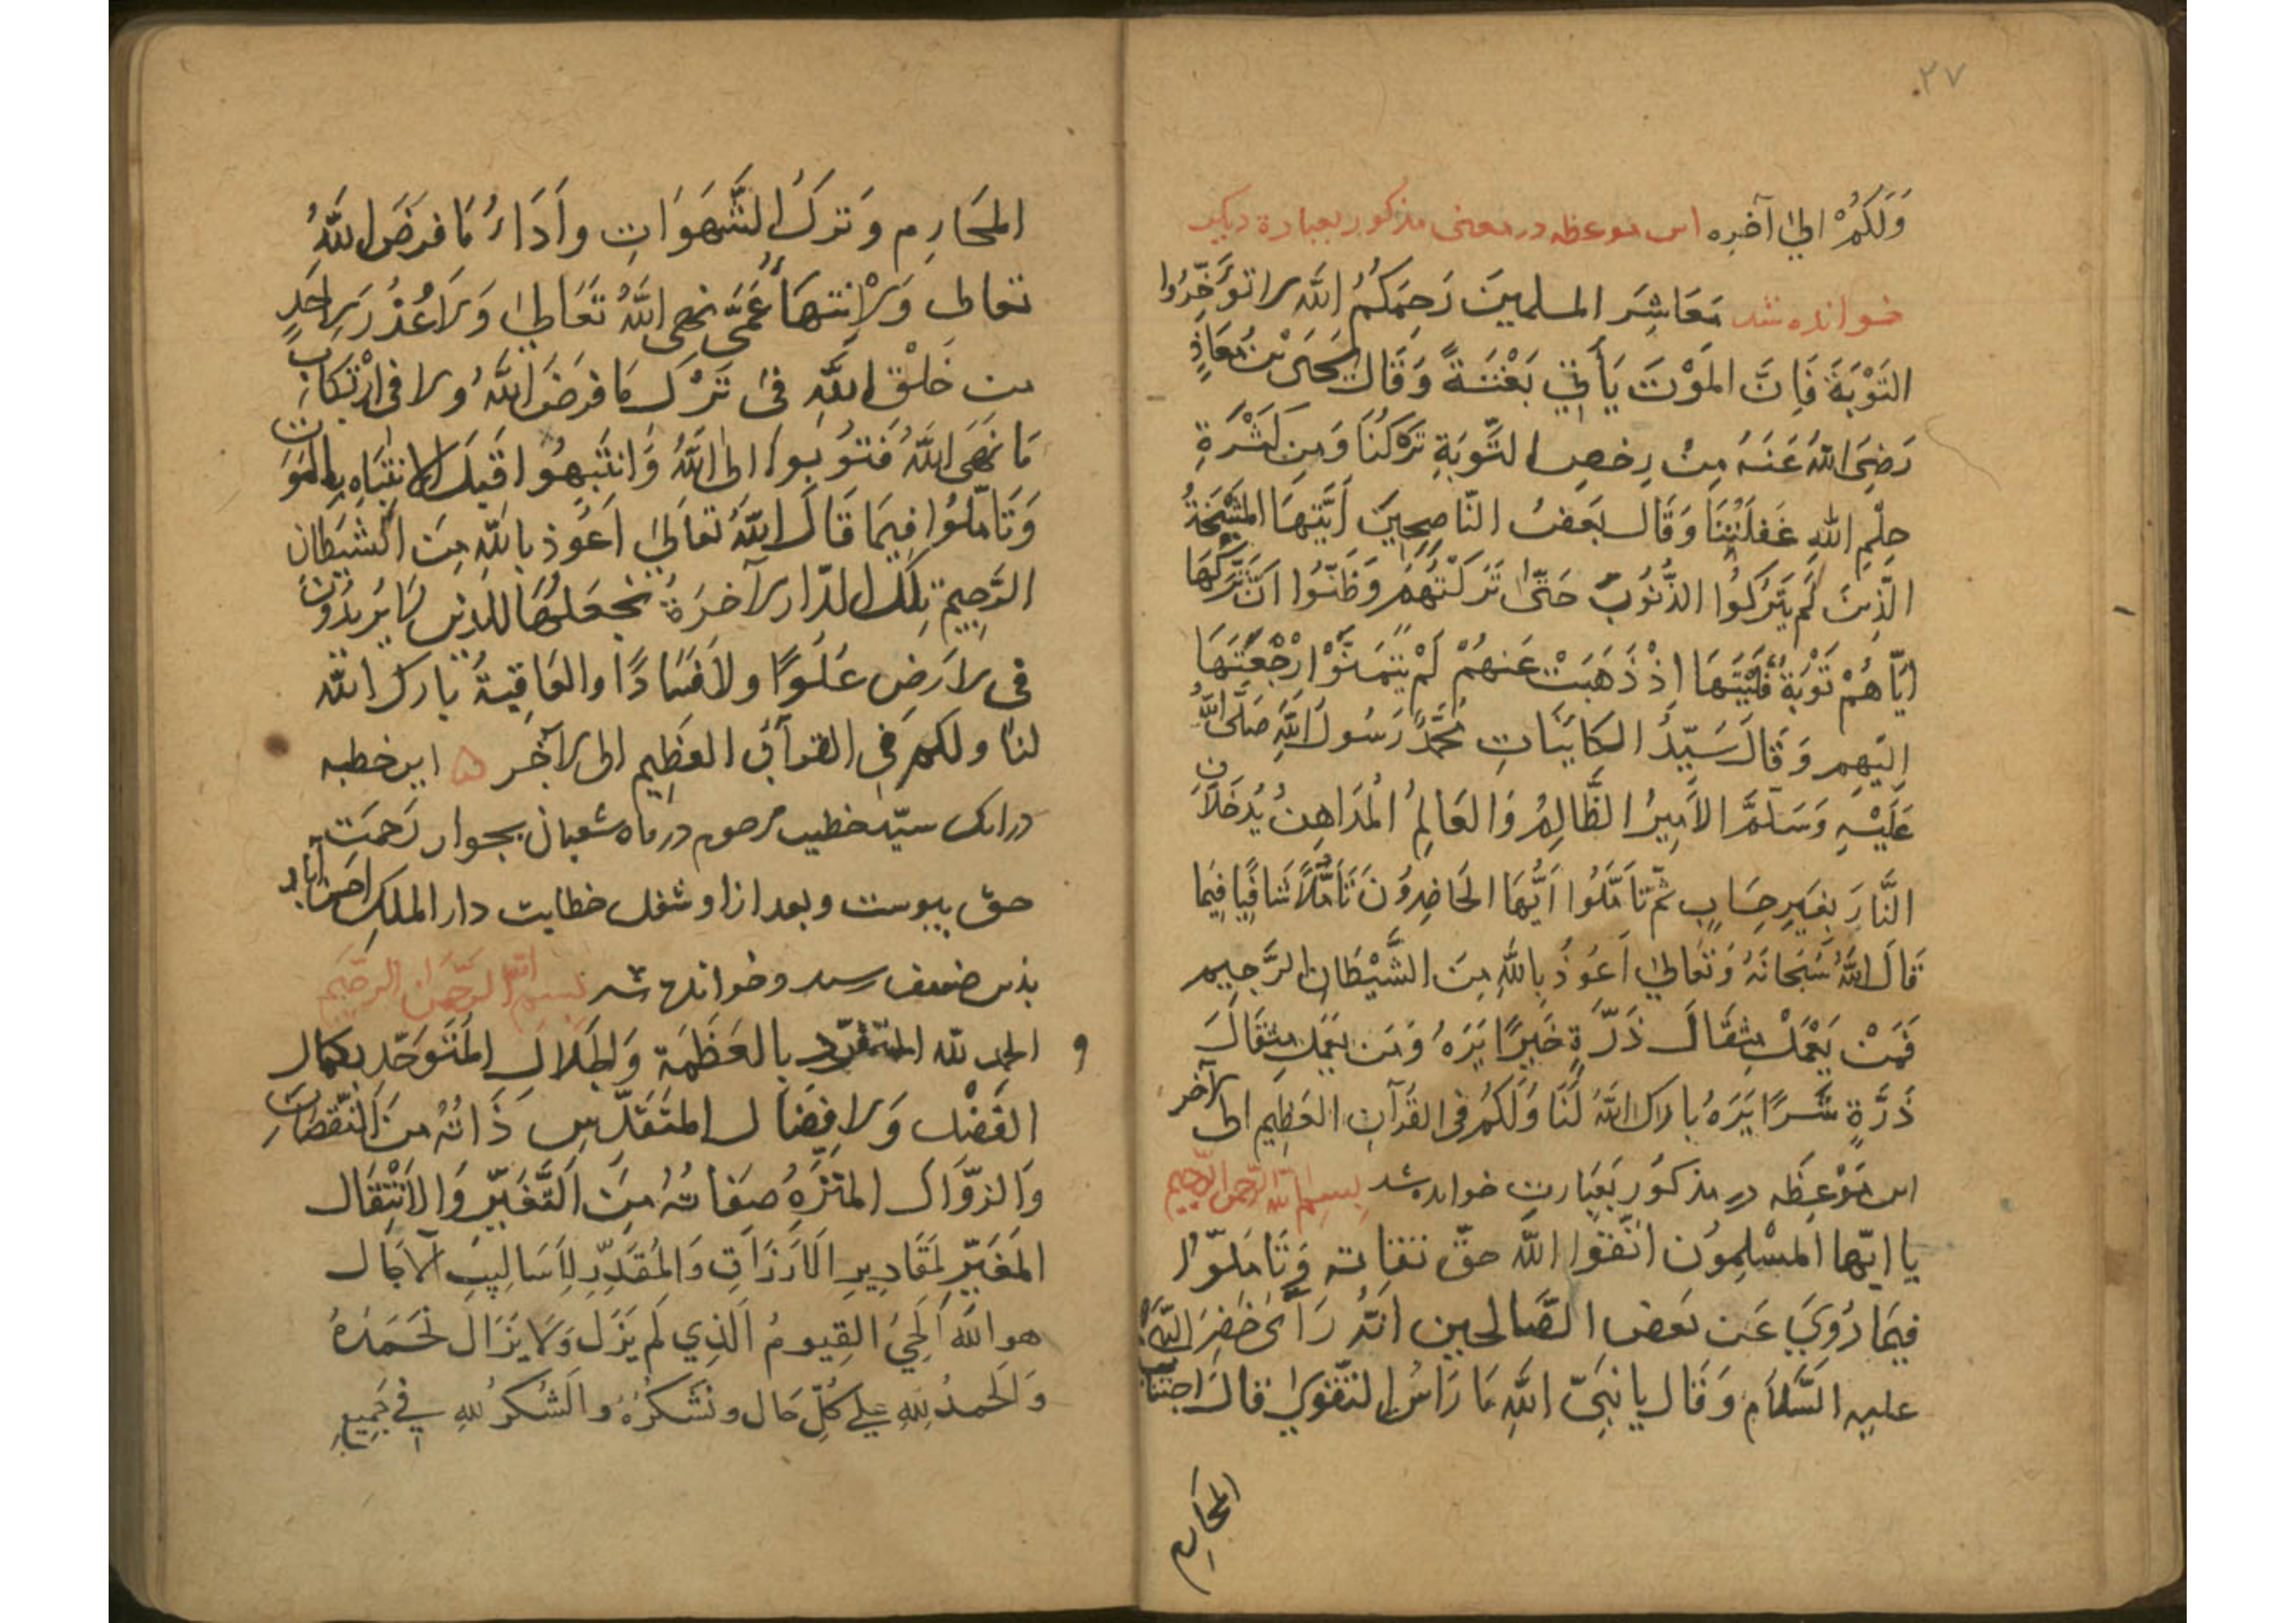 ٢٧
وَلَكُمْ اِلىٰ آخِرِه اين موعظه در معنى مذكور بعبارة ديكر
خوانده شد مَعَاشِرَ المسلمينَ رَحِمَكُمُ اللّٰه لا تُؤَخِّرُوا
التَوْبَةَ فَاِنَّ المَوْتَ يَأتِي بَغْتَةً وَقَالَ يَحْيَى بْنُ مُعَاذٍ
رَضِيَ اللّٰهُ عَنْهُ مِنْ رخصِ التَّوبَةِ تَرَكْنَا وَمِن كَثْرَةِ
حِلْمِ اللّٰهِ غَفَلْتُنَا وَقَالَ بَعَضُ النّاصِحِينَ اَيَّتهَا المَشْيَخَةُ
الَّذِينَ لَم يَتْرُكُوا الذُّنُوبَ حَتّىٰ تَرَكَتْهُمْ وَظَنُّوا اَنَّ تَرْكَهَا
ايّاهُمْ تَوْبَةٌ فَلَيْتَهَا اِذْ ذَهَبَتْ عَنهُمْ لَمْ يَتَمَنَّوْا رْجْعَتَهَا
اِلَيهِم وَقَالَ سَيِّدُ الكايِنَاتِ مُحَمَّدٌ رَسُولُ اللّٰهِ صَلَّى اللّٰهُ
عَلَيْهِ وَسَلَّمَ الاَمِيرُ الظَّالِمُ وَالعَالِمُ المُدَاهِنُ يُدخَلاَنِ
النَّارَ بِغَيرِ حِسَابٍ ثمّ تاَمَّلُوا اَيُّهَا الحَاضِرُونَ تَاَمُّلاً شَافِيًا فِيمَا
قَالَ اللّٰهُ سُبْحَانَهُ وَتَعَالىٰ اَعُوذُ بِاللّٰهِ مِنَ الشَّيْطَانِ الرَّجِيمِ
فَمَنْ يَعْمَلْ مِثقَالَ ذَرَّةٍ خَيرًا يَرَهُ وَمَن يَعمَل مِثقَالَ
ذَرَّةٍ شَرًا يَرَهُ بارك اللّٰهُ لَنَا وَلَكُمْ فى القُرآنِ العَظِيمِ الى الآخر
اين مَوْعِظَه در مذكور بَعِبَارت خوانده شد بسم اللّٰه الرّحمن الرّحيم
يا ايّها المسْلِمُون اتّقوا اللّٰه حقّ تقاته وَتَامّلُوا
فيمَا رُوِيَ عَن بَعْض الصَّالحين انَّهُ رَاَى خِضْرَ النَّبِيَّ
عليه السَّلاَم وَقَال يا نَبِيّ اللّٰهِ مَا رَأسُ التقوىٰ قالَ اجتناب
المحارم
المحَارِم وَتركُ الشَّهَوَاتِ واَدَاءُ مَا فرَضَ اللّٰهُ
تعالى وَالاِنتهَاءُ عَمَّا نهى اللّٰهُ تَعَالىٰ وَلاَ عُذُرَ لاِحَدٍ
من خَلْق اللّٰهِ فىٰ تَرْك مَا فرضَ اللّٰهُ ولا فى ارْتكاب
مَا نَهَى اللّٰهُ فَتوبُوا الى اللّٰهِ وَانتبِهُوا قَبلَ الانتبَاه بالموت
وَتَامّلُوا فِيمَا قَالَ اللّٰهُ تعَالىٰ اعُوذ باللّٰهِ مِنَ الشَيطان
الرَّجِيم تِلكَ الدّار الآخرَةُ نجعَلهَا للذين لا يُرِيدُونَ
فى الاَرض عَلُوًّا ولاَ فَسَادًا والعَاقِبَة بارك اللّٰه
لنَا ولكم فىِ القرآنِ العَظِيم الى الآخر اين خطبه
درانك سيّد خطيب مرحوم در ماه شعبان بجوار رَحمت
حق پيوست وبعد ازاو شغل خطابت دار الملك احمد آباد
بذين ضعيف رسيد وخوانده شد بسم اللّٰه الرّحمٰن الرّحيم
الحمد للّٰه المتفرّد بالعَظَمَة وَالجَلاَلِ المُتَوَحّد بكمال
الفَضْل وَالافِضَال المتَقَدّسِ ذَاتُهُ مِنَ النّقصَانِ
وَالزوَّال المنَزَّهِ صِفاتُهُ مِنَ التَّغَيّرِ وَالاِنْتِقَال
المغَيّرِ لِمَقَادِيرِ الاَرزَاقِ وَالمُقَدِّرِ لاَسَاليبِ الآجَال
هو اللّٰه الحَيُّ القيومُ الّذِي لم يَزَل وَلاَ يَزَال نَحْمَدُهُ
وَالحَمدُ للّٰهِ عَلى كُلِّ حَال ونَشكُرُهُ والشُكرُ للّٰهِ فِي جَمِيعِ